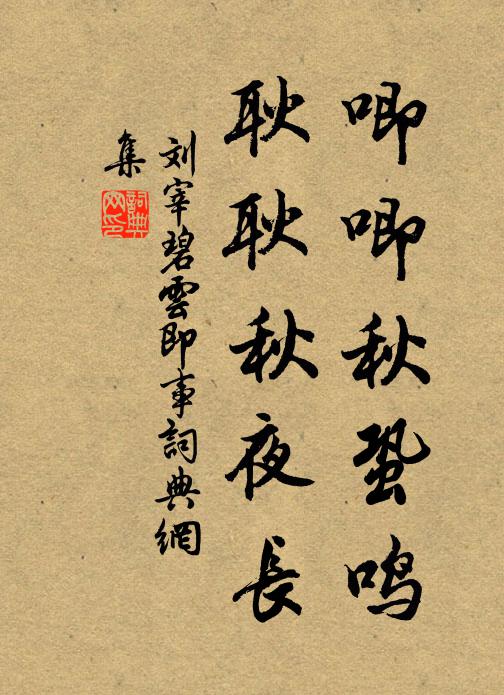 唧唧秋蛩鸣
耿耿秋夜長
刘宰碧雲即事詞典網
集
詞典网印